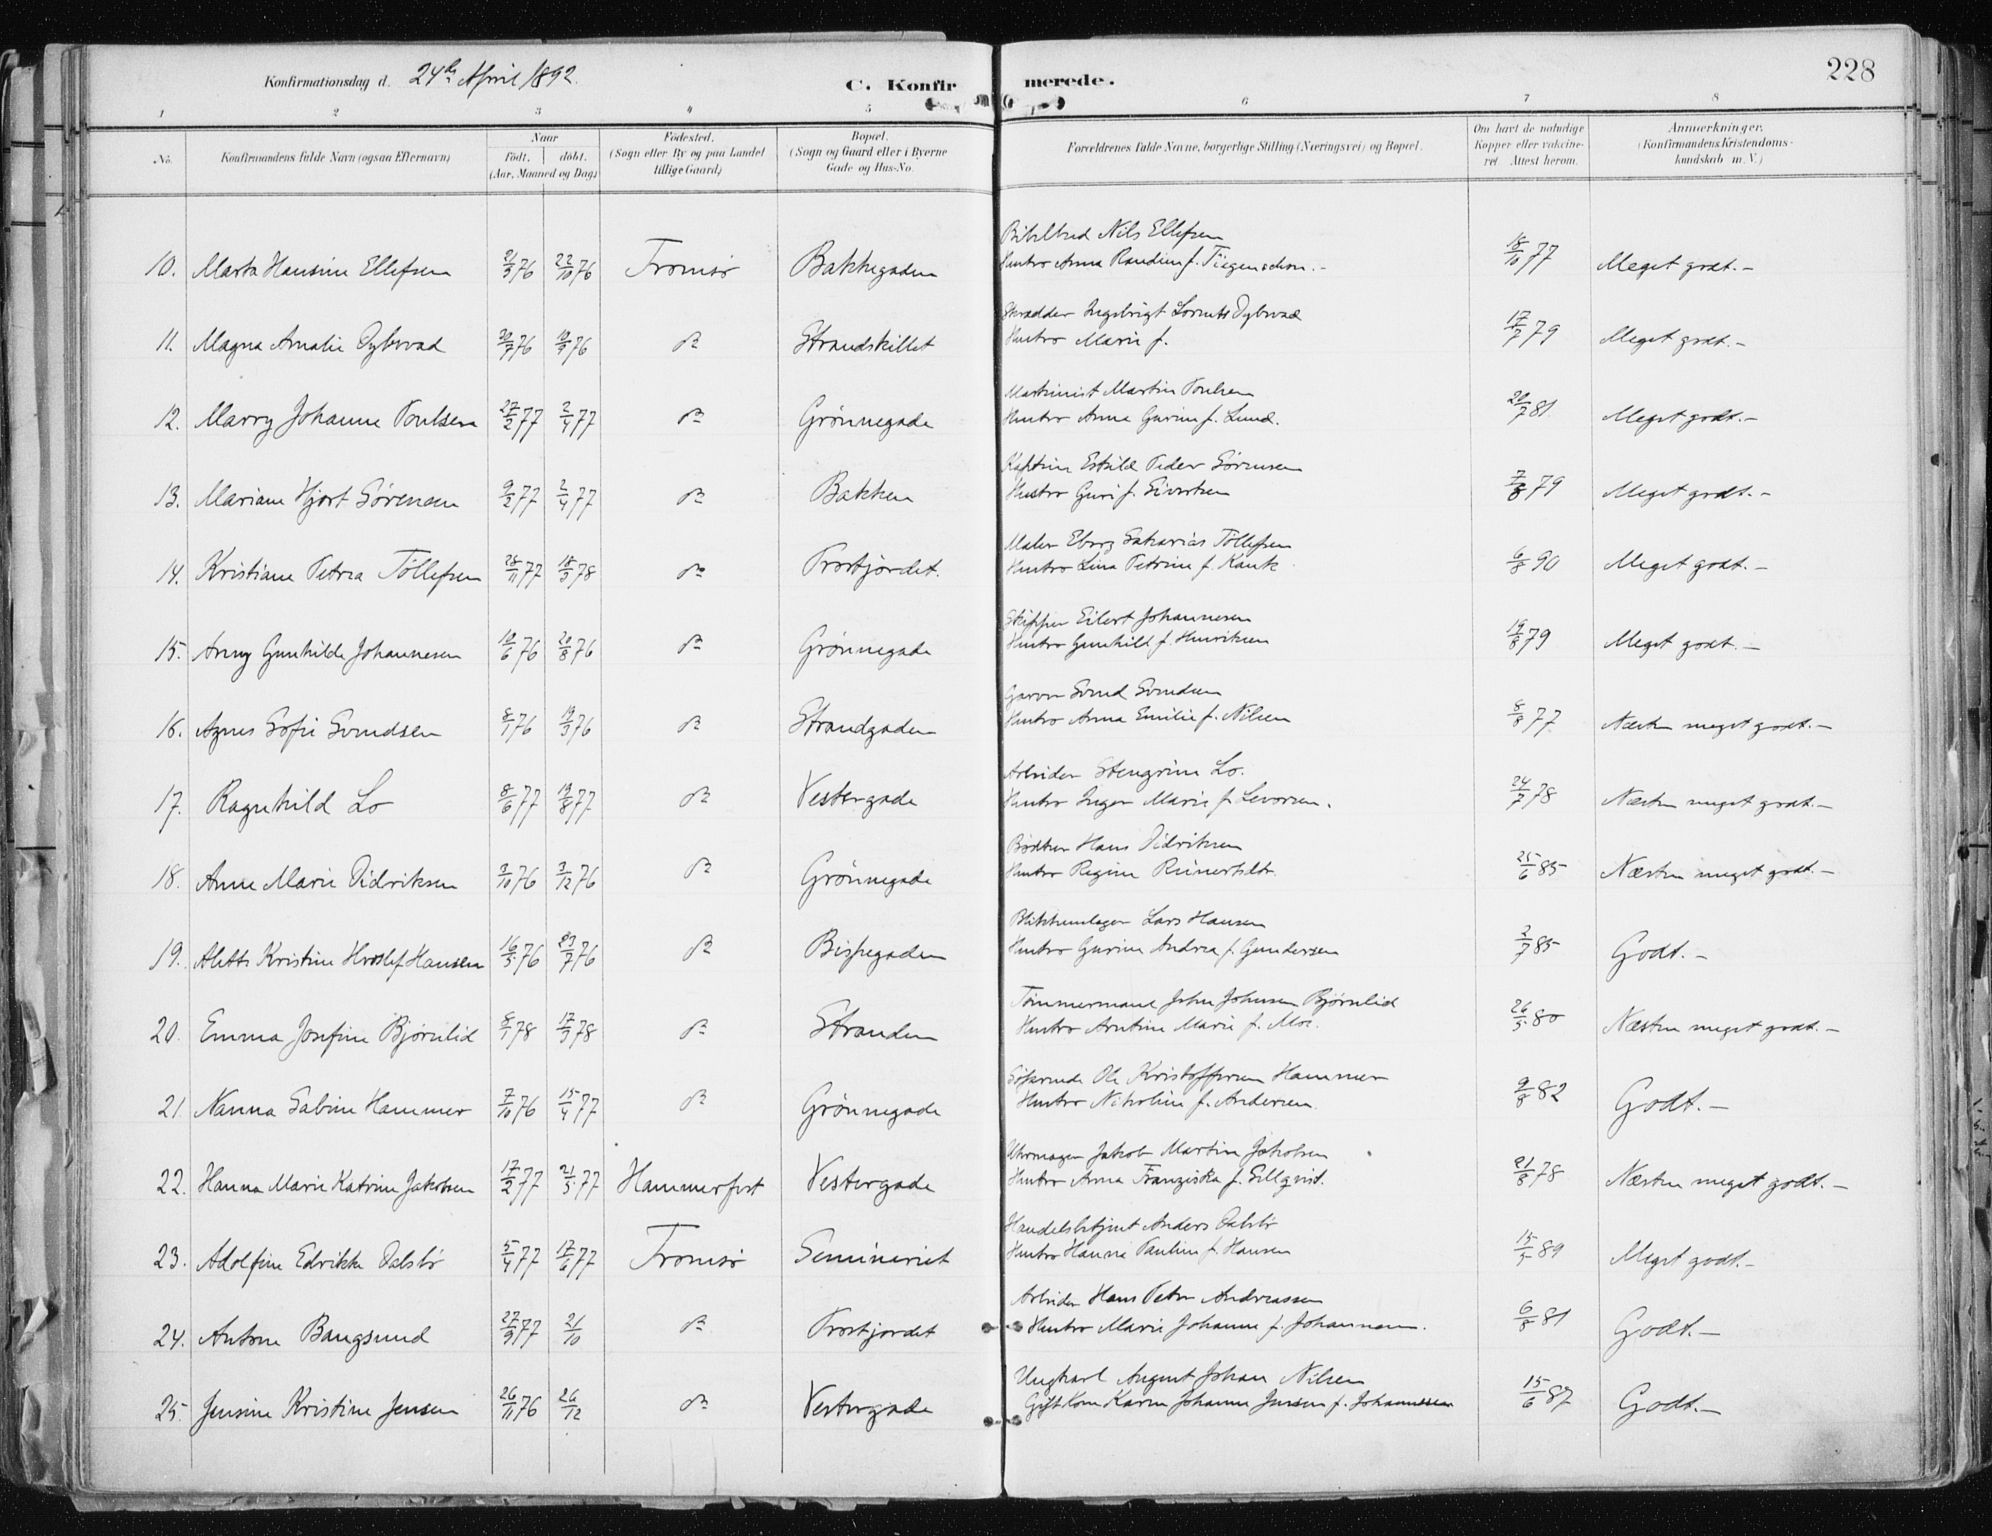 Konfirmationsdag d. 24de April 1892.
C. Konfirmerede.
228
1 2 3 4 5 6 7 8
No. Konfirmandens fulde Navn (ogsaa Efternavn) Naar født. døbt. (Aar, Maaned og Dag) Fødested. (Sogn eller By og paa Landet tillige Gaard) Bopæl. (Sogn og Gaard eller i Byerne Gade og Hus-No. Forældrenes fulde Navne, borgerlige Stilling (Næringsvei) og Bopæl. Om havt de naturlige Kopper eller vakcineret. Attest herom. Anmærkninger. (Konfirmandens Kristendomskundskab m. V.)
Nils Ellefsen
10. Marta Hansine Ellefsen 21/9 76 22/10 76 Tromsø Bakkegaden Hustro Anna Randine f. 18/10 77 Meget godt.-
Skrædder Ingebrigt Dybvad
11. Magna Amalie Dybvad 30/7 76 10/9 76 do Strandskillet Hustro Marie f. 17/7 79 Meget godt.-
Maskinist Martin Poulsen
12. Marry Johanne Poulsen 27/2 77 2/4 77 do Grønnegade Hustro Anna Gurine f. Lund. 20/7 81 Meget godt.-
Kaptein Eskild Peder Sørensen
13. Mariane Hjort Sørensen 9/2 77 2/4 77 do Bakken Hustro Guri f. Sivertsen 7/8 79 Meget godt.-
Maler Eberg Sakarias Tøllefsen
14. Kristiane Petrea Tøllefsen 28/11 77 18/3 78 do Prostjordet. Hustro Lina Petrine f. Kank 6/8 90 Meget godt.-
Skipper Eilert Johannesen
15. Anny Gunhilde Johannesen 10/6 76 20/8 76 do Grønnegade Hustro Gunhild f. Henriksen 19/8 79 Meget godt.-
Garver Svend Svendsen
16. Agnes Sofie Svendsen 8/1 76 19/3 76 do Strandgaden Hustro Anna Emilie f. Nilsen 8/8 77 Næsten meget godt.-
Arbeider Stengrim Lo.
17. Ragnhild Lo 8/6 77 19/8 77 do Vestergade Hustro Inger Marie f. Levorsen. 24/7 78 Næsten meget godt.-
Bødker Hans Didriksen
18. Anne Marie Didriksen 3/10 76 3/12 76 do Grønnegade Hustro Regine 25/6 85 Næsten meget godt.-
Blikkenslager Lars Hansen
19. Alette Kristine Hroslef Hansen 16/5 76 23/7 76 do Bispegaden Hustro Gurine Andrea f. Gundersen 2/7 85 Godt.-
Tømmermand John Johnsen Bjørnlid
20. Emma Josefine Bjørnlid 8/1 78 17/3 78 do Stranden Hustro Arntine Marie f. Moe. 26/5 80 Næsten meget godt.-
Søfarende Ole Kristoffersen Hammer
21. Nanna Sabine Hammer 7/10 76 15/4 77 do Grønnegade Hustro Nikoline f. Andersen. 9/8 82 Godt.-
Uhrmager Jakob Martin Jakobsen
22. Hanna Marie Katrine Jakobsen 17/2 77 21/5 77 Hammerfest Vestergade Hustro Anna Franziska f. Sellqvist. 21/8 78 Næsten meget godt.-
Handelsbetjent Anders Dalsbø
23. Adolfine Edrikke Dalsbø 5/4 77 17/6 77 Tromsø Seminariet Hustro Hanna Pauline f. Hansen 15/5 89 Meget godt.-
Arbeider Hans Peter Andreassen
24. Antone Bangsund 27/9 77 21/10 do Prostjordet Hustro Marie Johanne f. Johannesen. 6/8 81 Godt.-
Ungkarl August Johan Nilsen
25. Jensine Kristine Jensen 26/11 76 26/12 do Vestergade Gift Kone Karen Johanne Jensen f. Johannessen 15/6 87 Godt.-